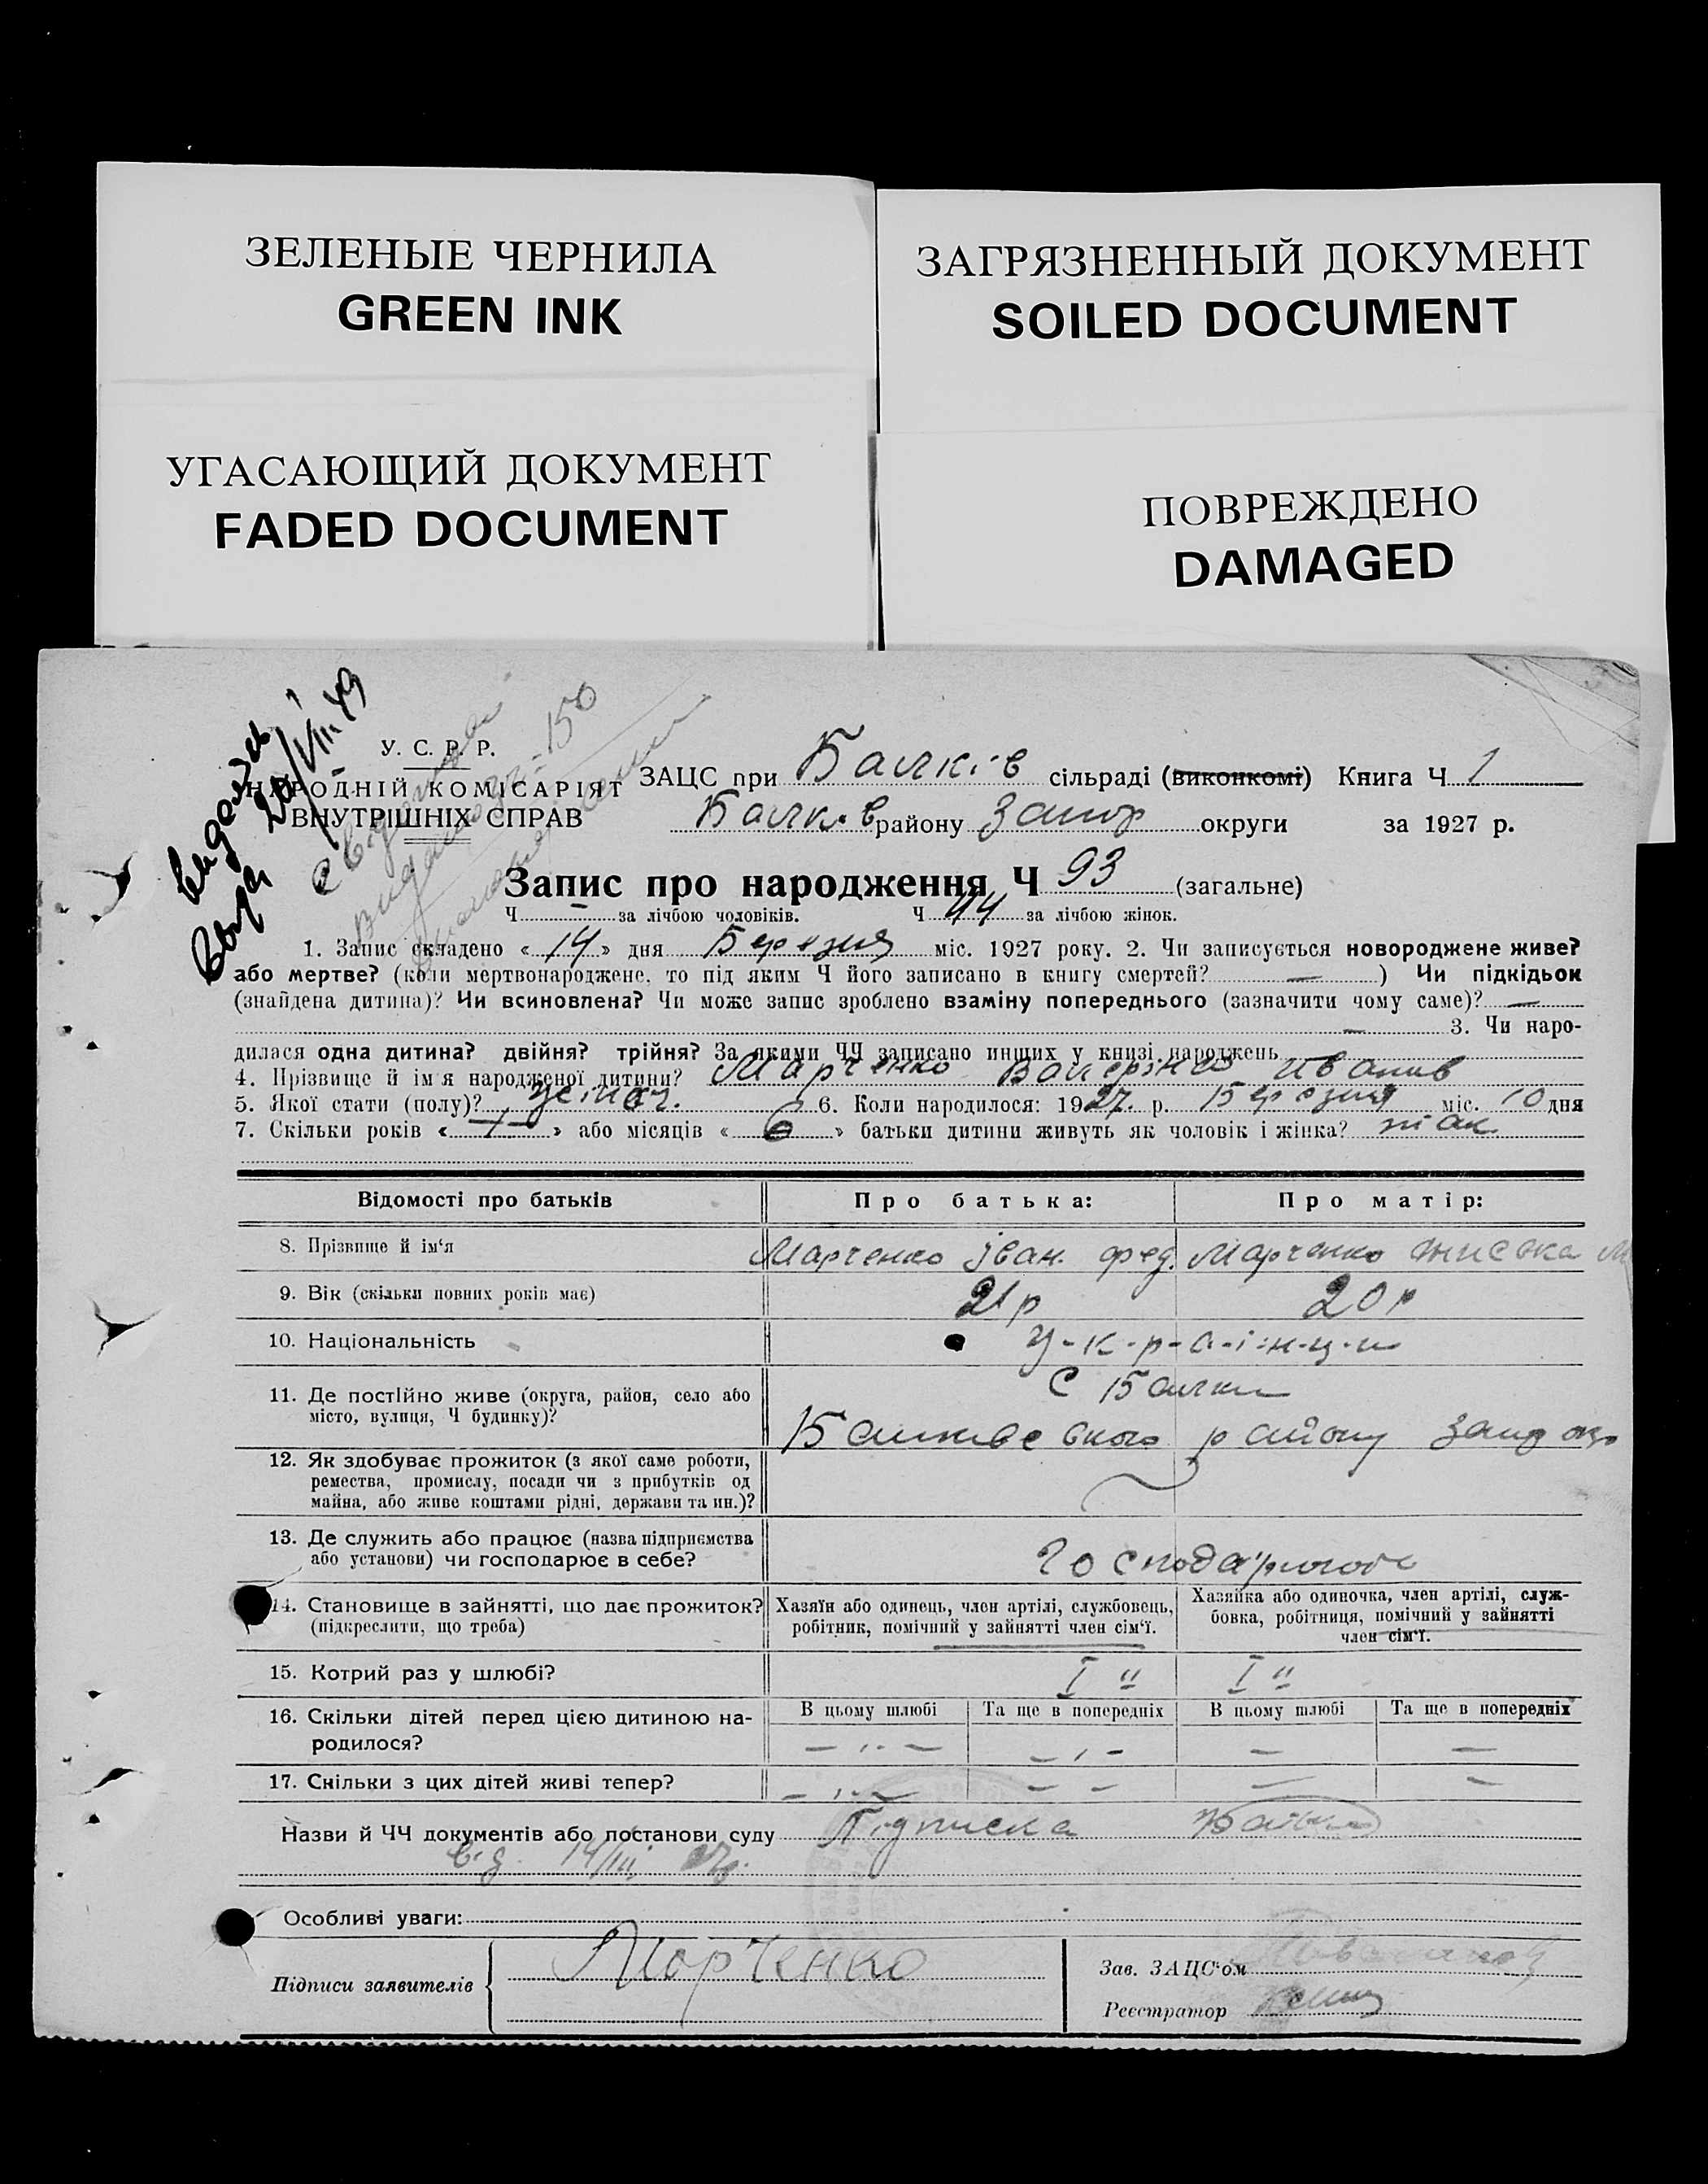 ЗЕЛЕНЫЕ ЧЕРНИЛА
GREEN INK
ЗАГРЯЗНЕННЫЙ ДОКУМЕНТ
SOILED DOCUMENT
УГАСАЮЩИЙ ДОКУМЕНТ
FADED DOCUMENT
ПОВРЕЖДЕНО
DAMAGED
У. С. Р. Р.
НАРОДНІЙ КОМІСАРІЯТ
ВНУТРІШНІХ СПРАВ
ЗАЦС при Балків сільраді (виконкомі) Книга Ч 1
Балків району Запор округи за 1927 р.
Запис про народження Ч 93 (загальне)
Ч — за лічбою чоловіків. Ч 44 за лічбою жінок.
1. Запис складено « 14 » дня Березня міс. 1927 року. 2. Чи записується новороджене живе?
або мертве? (коли мертвонароджене, то під яким Ч його записано в книгу смертей? — ) Чи підкідьок
(знайдена дитина)? Чи всиновлена? Чи може запис зроблено взаміну попереднього (зазначити чому саме)? —
— 3. Чи наро-
дилася одна дитина? двійня? трійня? За якими ЧЧ записано инших у книзі народжень
4. Прізвище й ім'я народженої дитини? Марченко Иванів
5. Якої стати (полу)? 6. Коли народилося: 1927 р. Березня міс. 10 дня
7. Скільки років « — » або місяців « 6 » батьки дитини живуть як чоловік і жінка? так
Відомості про батьків
Про батька:
Про матір:
8. Прізвище й ім'я Марченко Іван. Фед. Марченко
9. Вік (скільки повних років має) 21 р 20 р
10. Національність У-к-р-а-ї-н-ц-и
11. Де постійно живе (округа, район, село або С Балки
місто, вулиця, Ч будинку)? району
12. Як здобуває прожиток (з якої саме роботи,
ремества, промислу, посади чи з прибутків од
майна, або живе коштами рідні, держави та ин.)?
13. Де служить або працює (назва підприємства
або установи) чи господарює в себе?
14. Становище в зайнятті, що дає прожиток?
(підкреслити, що треба)
Хазяїн або одинець, член артілі, службовець,
робітник, помічний у зайнятті член сім'ї.
Хазяйка або одиночка, член артілі, служ-
бовка, робітниця, помічний у зайнятті
член сім'ї.
15. Котрий раз у шлюбі? I " I "
16. Скільки дітей перед цією дитиною на-
родилося?
В цьому шлюбі Та ще в попередніх В цьому шлюбі Та ще в попередніх
17. Скільки з цих дітей живі тепер?
Назви й ЧЧ документів або постанови суду Підписка
14/III 27
Особливі уваги:
Підписи заявителів Марченко
Зав. ЗАЦС'ом
Реєстратор